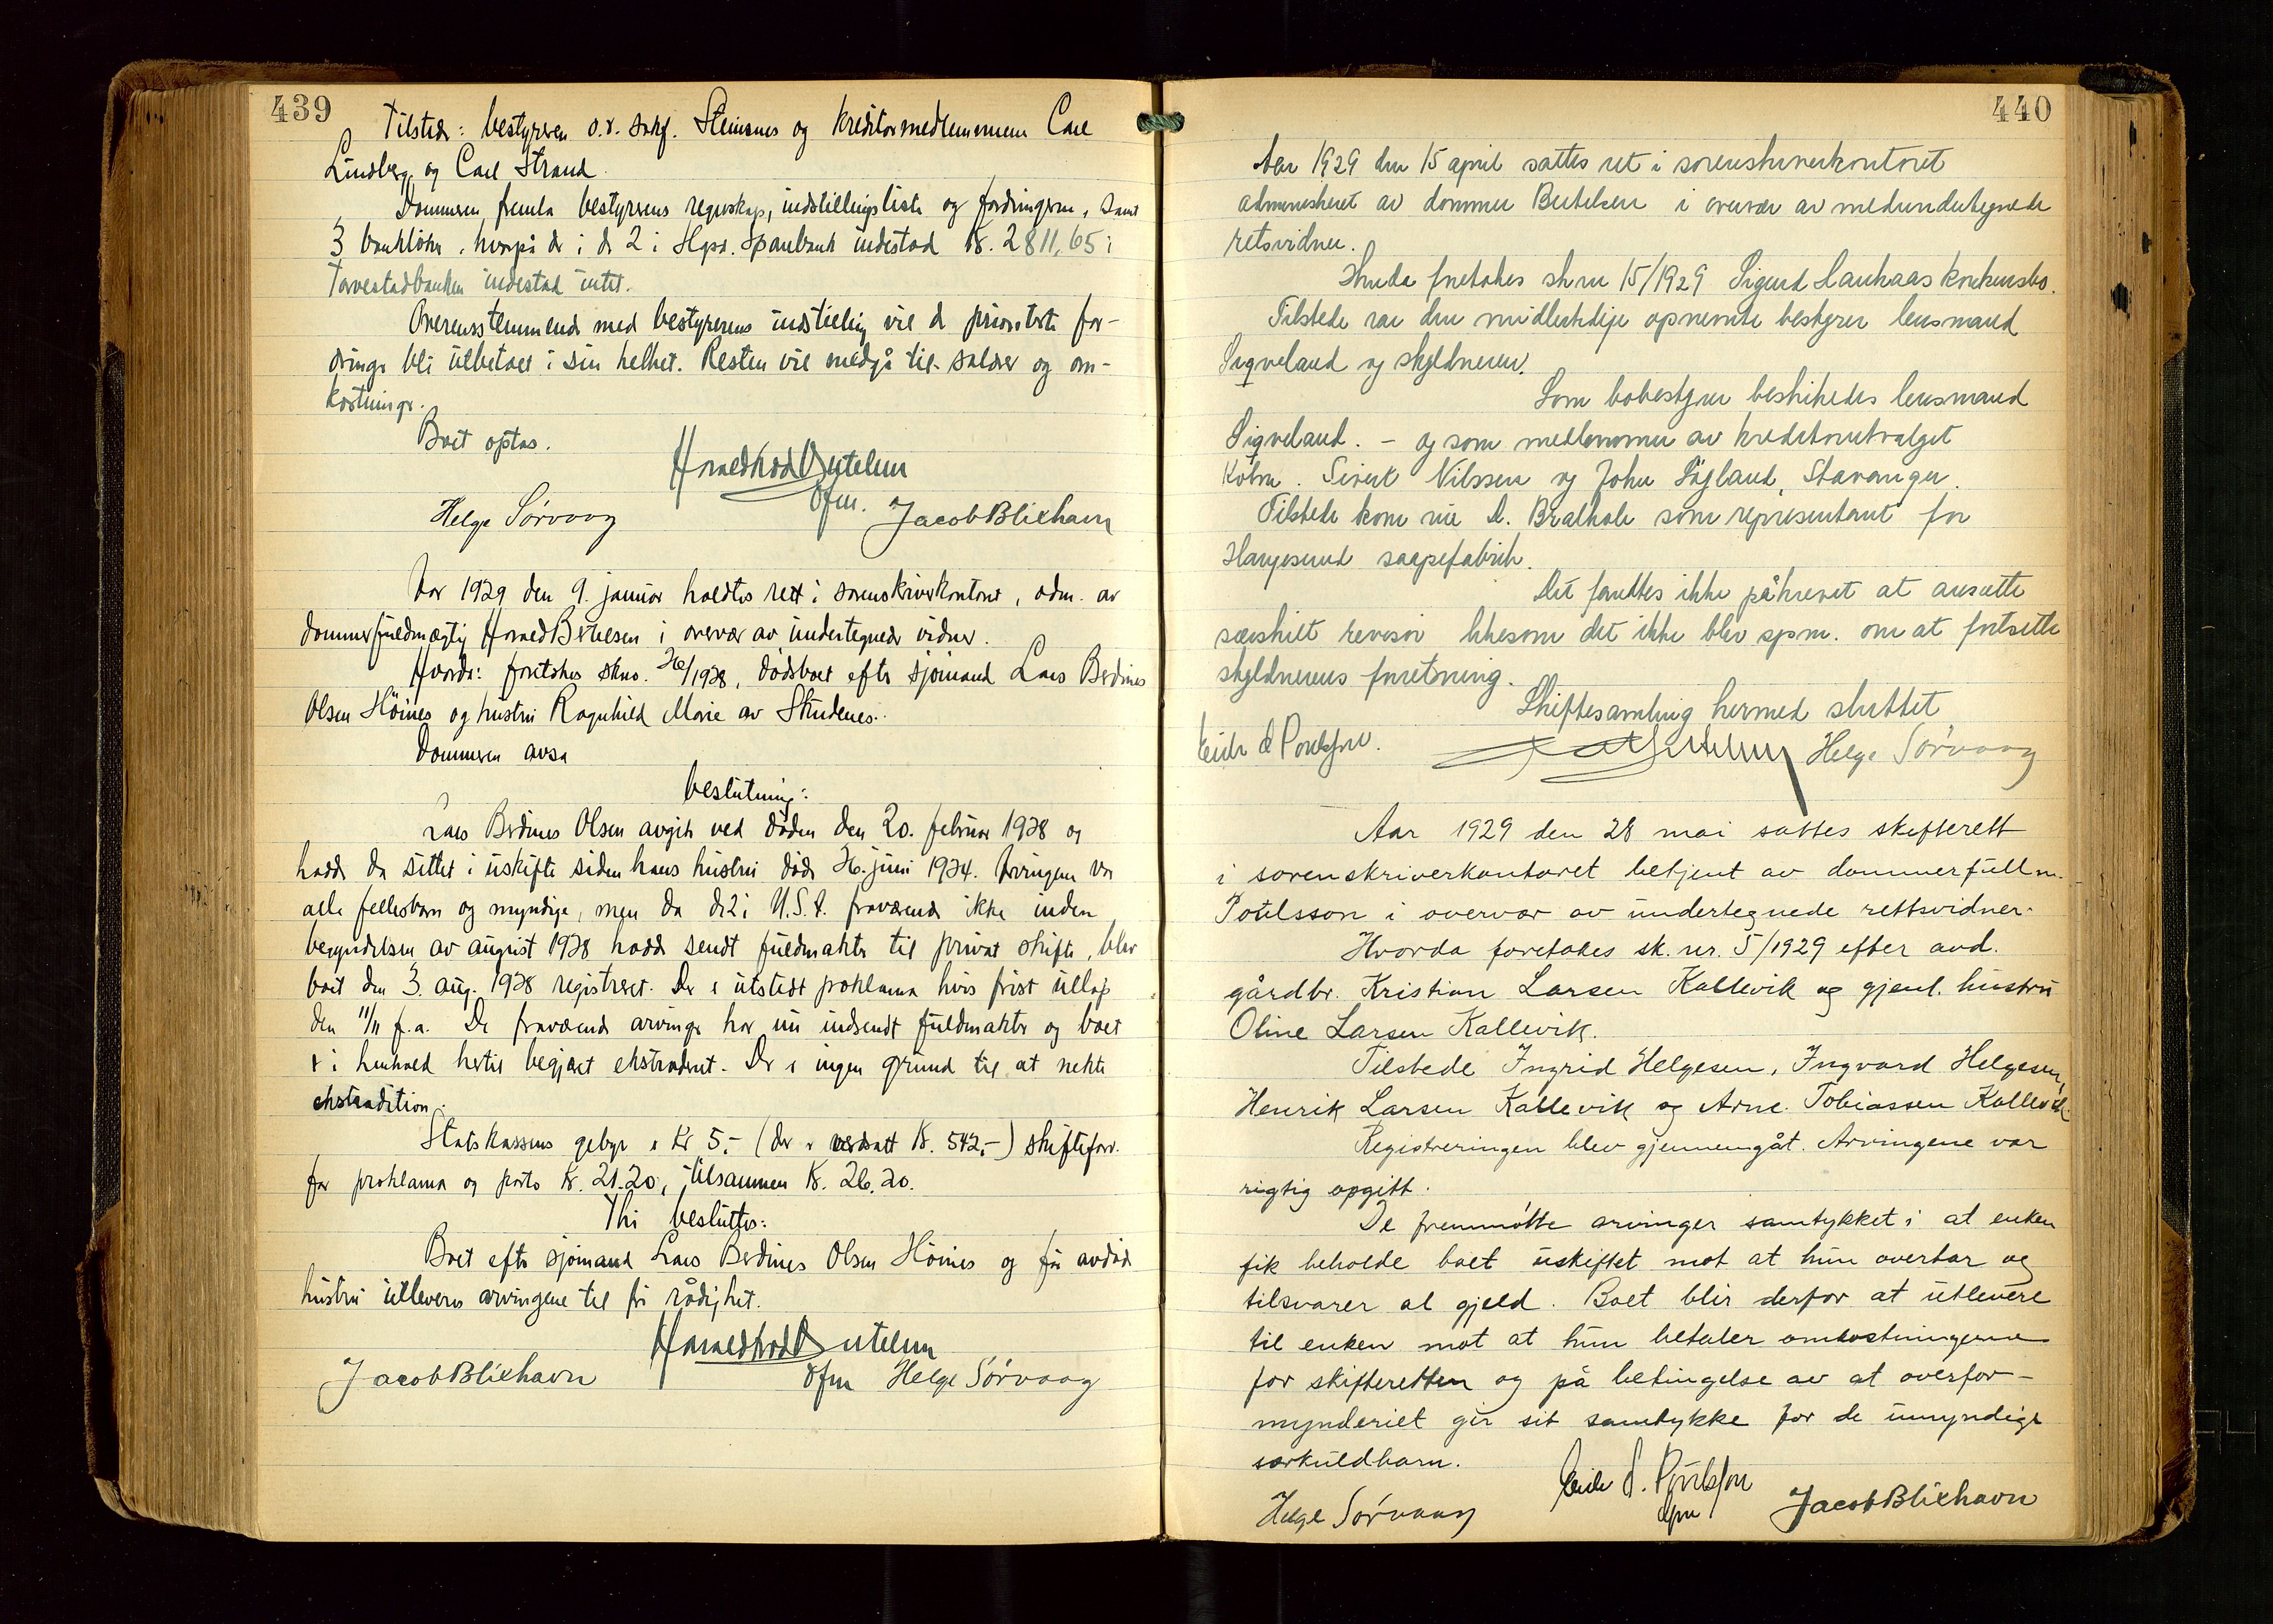 439
Tilstede: bestyreren o.r. sakf. Steinsnes og kreditormedlemmene Carl
Lindberg og Carl Strand.
Dommeren fremla bestyrerens regnskap, indstillingsliste og fordringerne, samt
3 bankbøker, hvorpå der i de 2 i Hgsd. Sparebank indestod Kr. 2811,65 i
Torvestadbanken indestod intet.
Overensstemmende med bestyrerens indstilling vil de prioriterte for-
dringer bli utbetalt i sin helhet. Resten vil medgå til salær og om-
kostninger.
Boet optas.
Bertelsen
dfm.
Helge Sørvaag
Jacob Blikhavn
Aar 1929 den 9. januar holdtes rett i sorenskriverkontoret, adm. av
dommerfuldmægtig Bertelsen i overvær av undertegnede vidner.
Hvorda: foretokes skno. 26/1928, dødsboet efter sjømand Lars Berdines
Olsen Höines og hustru Ragnhild Marie av Skudenes.
Dommeren avsa
beslutning:
Lars Berdines Olsen avgik ved døden den 20. februar 1928 og
hadde da sittet i uskifte siden hans hustru døde 26. juni 1924. Arvingene var
alle fellesbarn og myndige, men da de 2 i U.S.A. fraværende ikke inden
begyndelsen av august 1928 hadde sendt fuldmakter til privat skifte, blev
boet den 3. aug. 1928 registreret. Der er utstedt proklama hvis frist utløp
den 11/11 f.a. De fraværende arvinger har nu indsendt fuldmakter og boet
er i henhold hertil begjært ekstraderet. Der er ingen grund til at nekte
ekstradition.
Statskassens gebyr er kr 5.- (der er verdsatt kr. 542.-) skifteforv.
for proklama og porto kr. 21.20, tilsammen kr. 26.20.
Thi besluttes:
Boet efter sjømand Lars Berdines Olsen Höines og før avdøde
hustru utleveres arvingene til fri rådighet.
Bertelsen
Jacob Blikhavn
dfm
Helge Sørvaag
440
Aar 1929 den 15 april sattes ret i sorenskriverkontoret
administreret av dommer Bertelsen i overvær av medundertegnede
retsvidner.
Hvorda foretokes sk nr 15/1929 Sigurd Hauhaas konkursbo.
Tilstede var den midlertidige opnevnte bestyrer lensmand
Sigveland og skyldneren.
Som bobestyrer beskikkedes lensmand
Sigveland. - og som medlemmer av kreditorutvalget
Kobm. Sivert Nilssen og John Søyland, Stavanger.
Tilstede kom nu A. Bralhole som representant for
Haugesund saapefabrik.
Det fandtes ikke påkrevet at ansætte
særskilt revisor likesom det ikke blev spm. om at fortsette
skyldnerens forretning.
Skiftesamling hermed sluttet
Poulsson.
Bertelsen
Helge Sørvaag
Aar 1929 den 28 mai sattes skifterett
i sorenskriverkontoret betjent av dommerfullm.
Poulsson i overvær av undertegnede rettsvidner.
Hvorda foretokes sk. nr. 5/1929 efter avd.
gårdbr. Kristian Larsen Kallevik og gjenl. hustru
Oline Larsen Kallevik.
Tilstede Ingrid Helgesen, Ingvard Helgesen,
Henrik Larsen Kallevik og Arne Tobiassen Kallevik.
Registreringen blev gjennemgåt. Arvingene var
rigtig opgitt.
De fremmøtte arvinger samtykket i at enken
fik beholde boet uskiftet mot at hun overtar og
tilsvarer al gjeld. Boet blir derfor at utlevere
til enken mot at hun betaler omkostningerne
for skifteretten og på betingelse av at overfor-
mynderiet gir sit samtykke for de umyndige
særkuldbarn.
Poulsson
dfm
Helge Sørvaag
Jacob Blikhavn